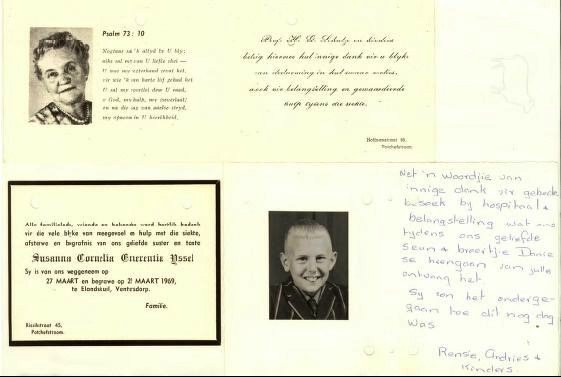 Psalm 73 : 10
Nogtans sal ek altyd by U bly;
niks sal my van U liefde skei —
U was my vaderhand vooraf het,
vir wie 'k van harte lief gehad het
U sal my voortlei deur U raad,
o God, my hulp, my toeverlaat;
en na die uur van aardse stryd,
my opneem in U heerlikheid.
Prof. H. G. Schulze en kinders
betuig hiermee hul innige dank vir u blyke
van deelneming in hul swaar verlies,
asook vir belangstelling en gewaardeerde
hulp tydens die siekte.
Potchefstroom.
Alle familielede, vriende en bekendes word hartlik bedank
vir die vele blyke van meegevoel en hulp met die siekte,
afsterwe en begrafnis van ons geliefde suster en tante
Susanna Cornelia Enerentia Yssel
Sy is van ons weggeneem op
27 MAART en begrawe op 21 MAART 1969,
te Elandskuil, Ventersdorp.
Familie.
Rissikstraat 45,
Potchefstroom.
Net 'n woordjie van
innige dank vir gebede
besoek by hospitaal &
belangstelling wat ons
tydens ons geliefde
seun & broertjie Danie
se heengaan van julle
ontvang het.
Sy son het onderge-
gaan toe dit nog dag
was
Rensie, Andries &
Kinders.